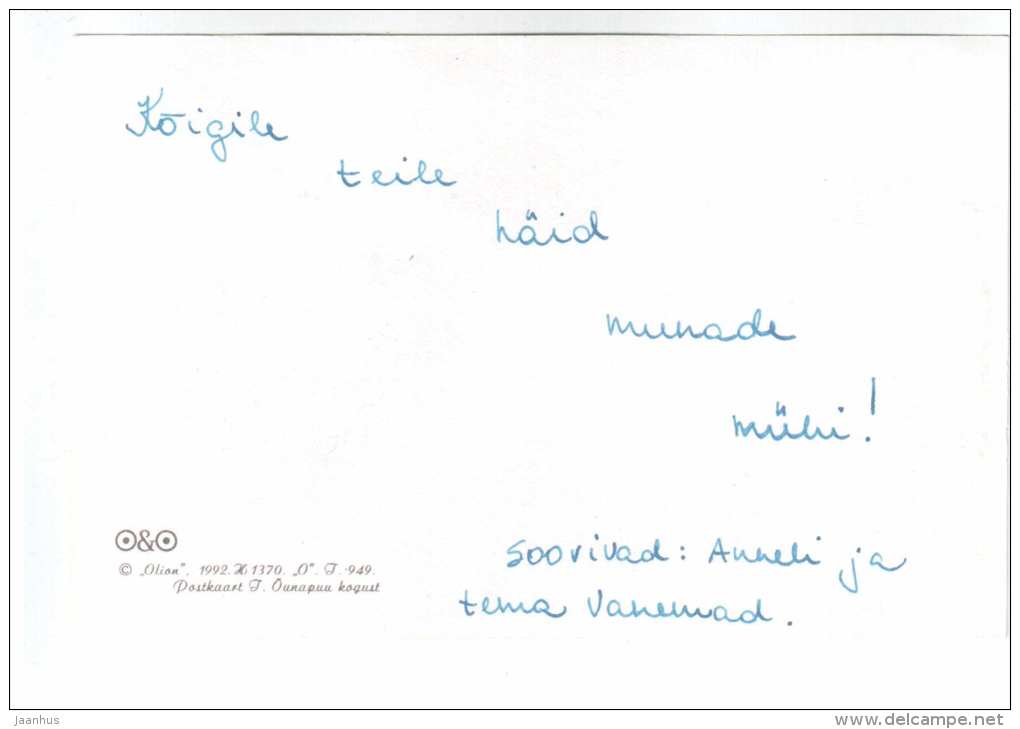 Kõigile
teile
häid
munade
mühi!
soovivad: Anneli ja
tema vanemad.
O&O
© „Olion", 1992. H 1370. „O". T. 949.
Postkaart T. Õunapuu kogust
Jaanhus
www.delcampe.net